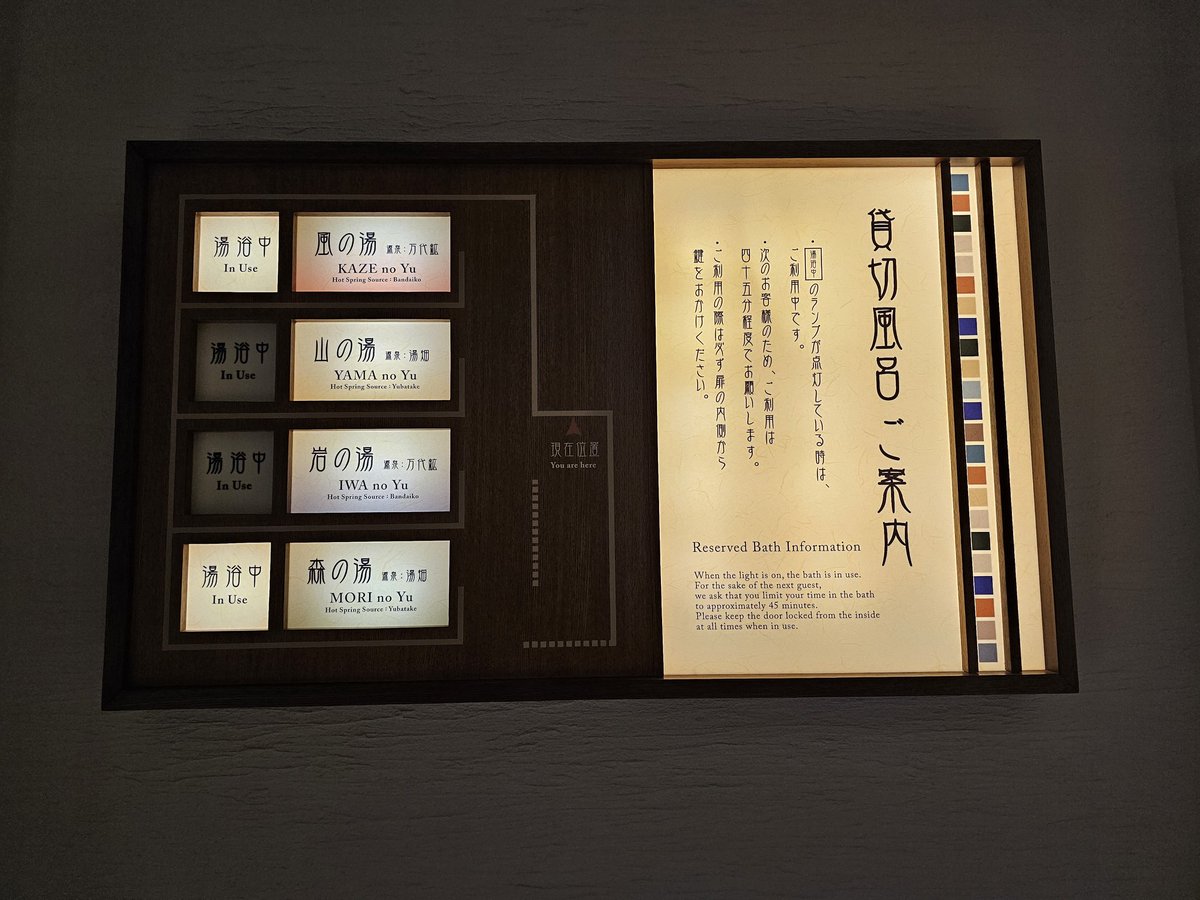 湯浴中
In Use
風の湯 源泉：万代鉱
KAZE no Yu
Hot Spring Source : Bandaiko
湯浴中
In Use
山の湯 源泉：湯畑
YAMA no Yu
Hot Spring Source : Yubatake
湯浴中
In Use
岩の湯 源泉：万代鉱
IWA no Yu
Hot Spring Source : Bandaiko
湯浴中
In Use
森の湯 源泉：湯畑
MORI no Yu
Hot Spring Source : Yubatake
現在位置
You are here
貸切風呂ご案内
・湯浴中のランプが点灯している時は、
ご利用中です。
・次のお客様のため、ご利用は
四十五分程度でお願いします。
・ご利用の際は必ず扉の内側から
鍵をおかけください。
Reserved Bath Information
When the light is on, the bath is in use.
For the sake of the next guest,
we ask that you limit your time in the bath
to approximately 45 minutes.
Please keep the door locked from the inside
at all times when in use.